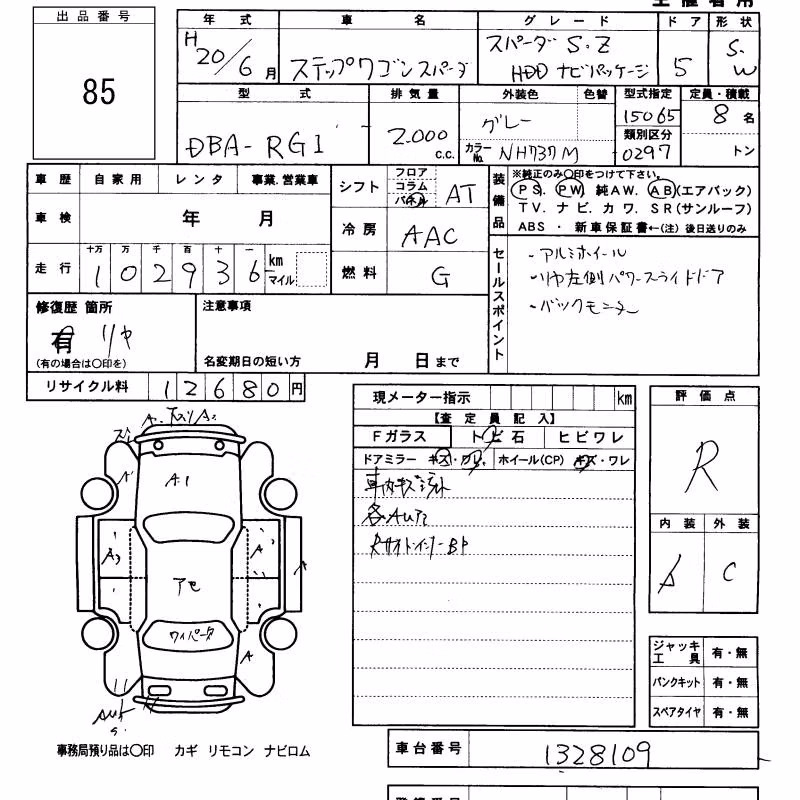 出品番号
85
年式
H20/6月
車名
ステップワゴンスパーダ
グレード
スパーダ S.Z
HDD ナビパッケージ
ドア
5
形状
S.W
型式
DBA-RG1
排気量
2.000
c.c.
外装色
色替
グレー
カラーNo. NH737M
型式指定
15065
類別区分
0297
定員・積載
8名
トン
車歴
自家用
レンタ
事業.営業車
車検
年 月
走行
十万 万 千 百 十 一
102936
km
マイル
シフト
フロア
コラム
パネル
AT
冷房
AAC
燃料
G
装備品
※純正のみ〇印をつけて下さい。
PS. PW 純AW. AB(エアバック)
TV. ナビ. カワ. SR(サンルーフ)
ABS ・ 新車保証書←(注) 後日送りのみ
セールスポイント
・アルミホイール
・リヤ左側パワースライドドア
・バックモニター
修復歴 箇所
有 リヤ
(有の場合は〇印を)
注意事項
名変期日の短い方 月 日まで
リサイクル料
12680円
現メーター指示
km
【査定員記入】
Fガラス
トビ石
ヒビワレ
ドアミラー キズ・ワレ
ホイール(CP) キズ・ワレ
評価点
R
内装
外装
C
A1
アセ
ワイパーダ
ジャッキ
工具
有・無
パンクキット
有・無
スペアタイヤ
有・無
事務局預り品は〇印 カギ リモコン ナビロム
車台番号
1328109